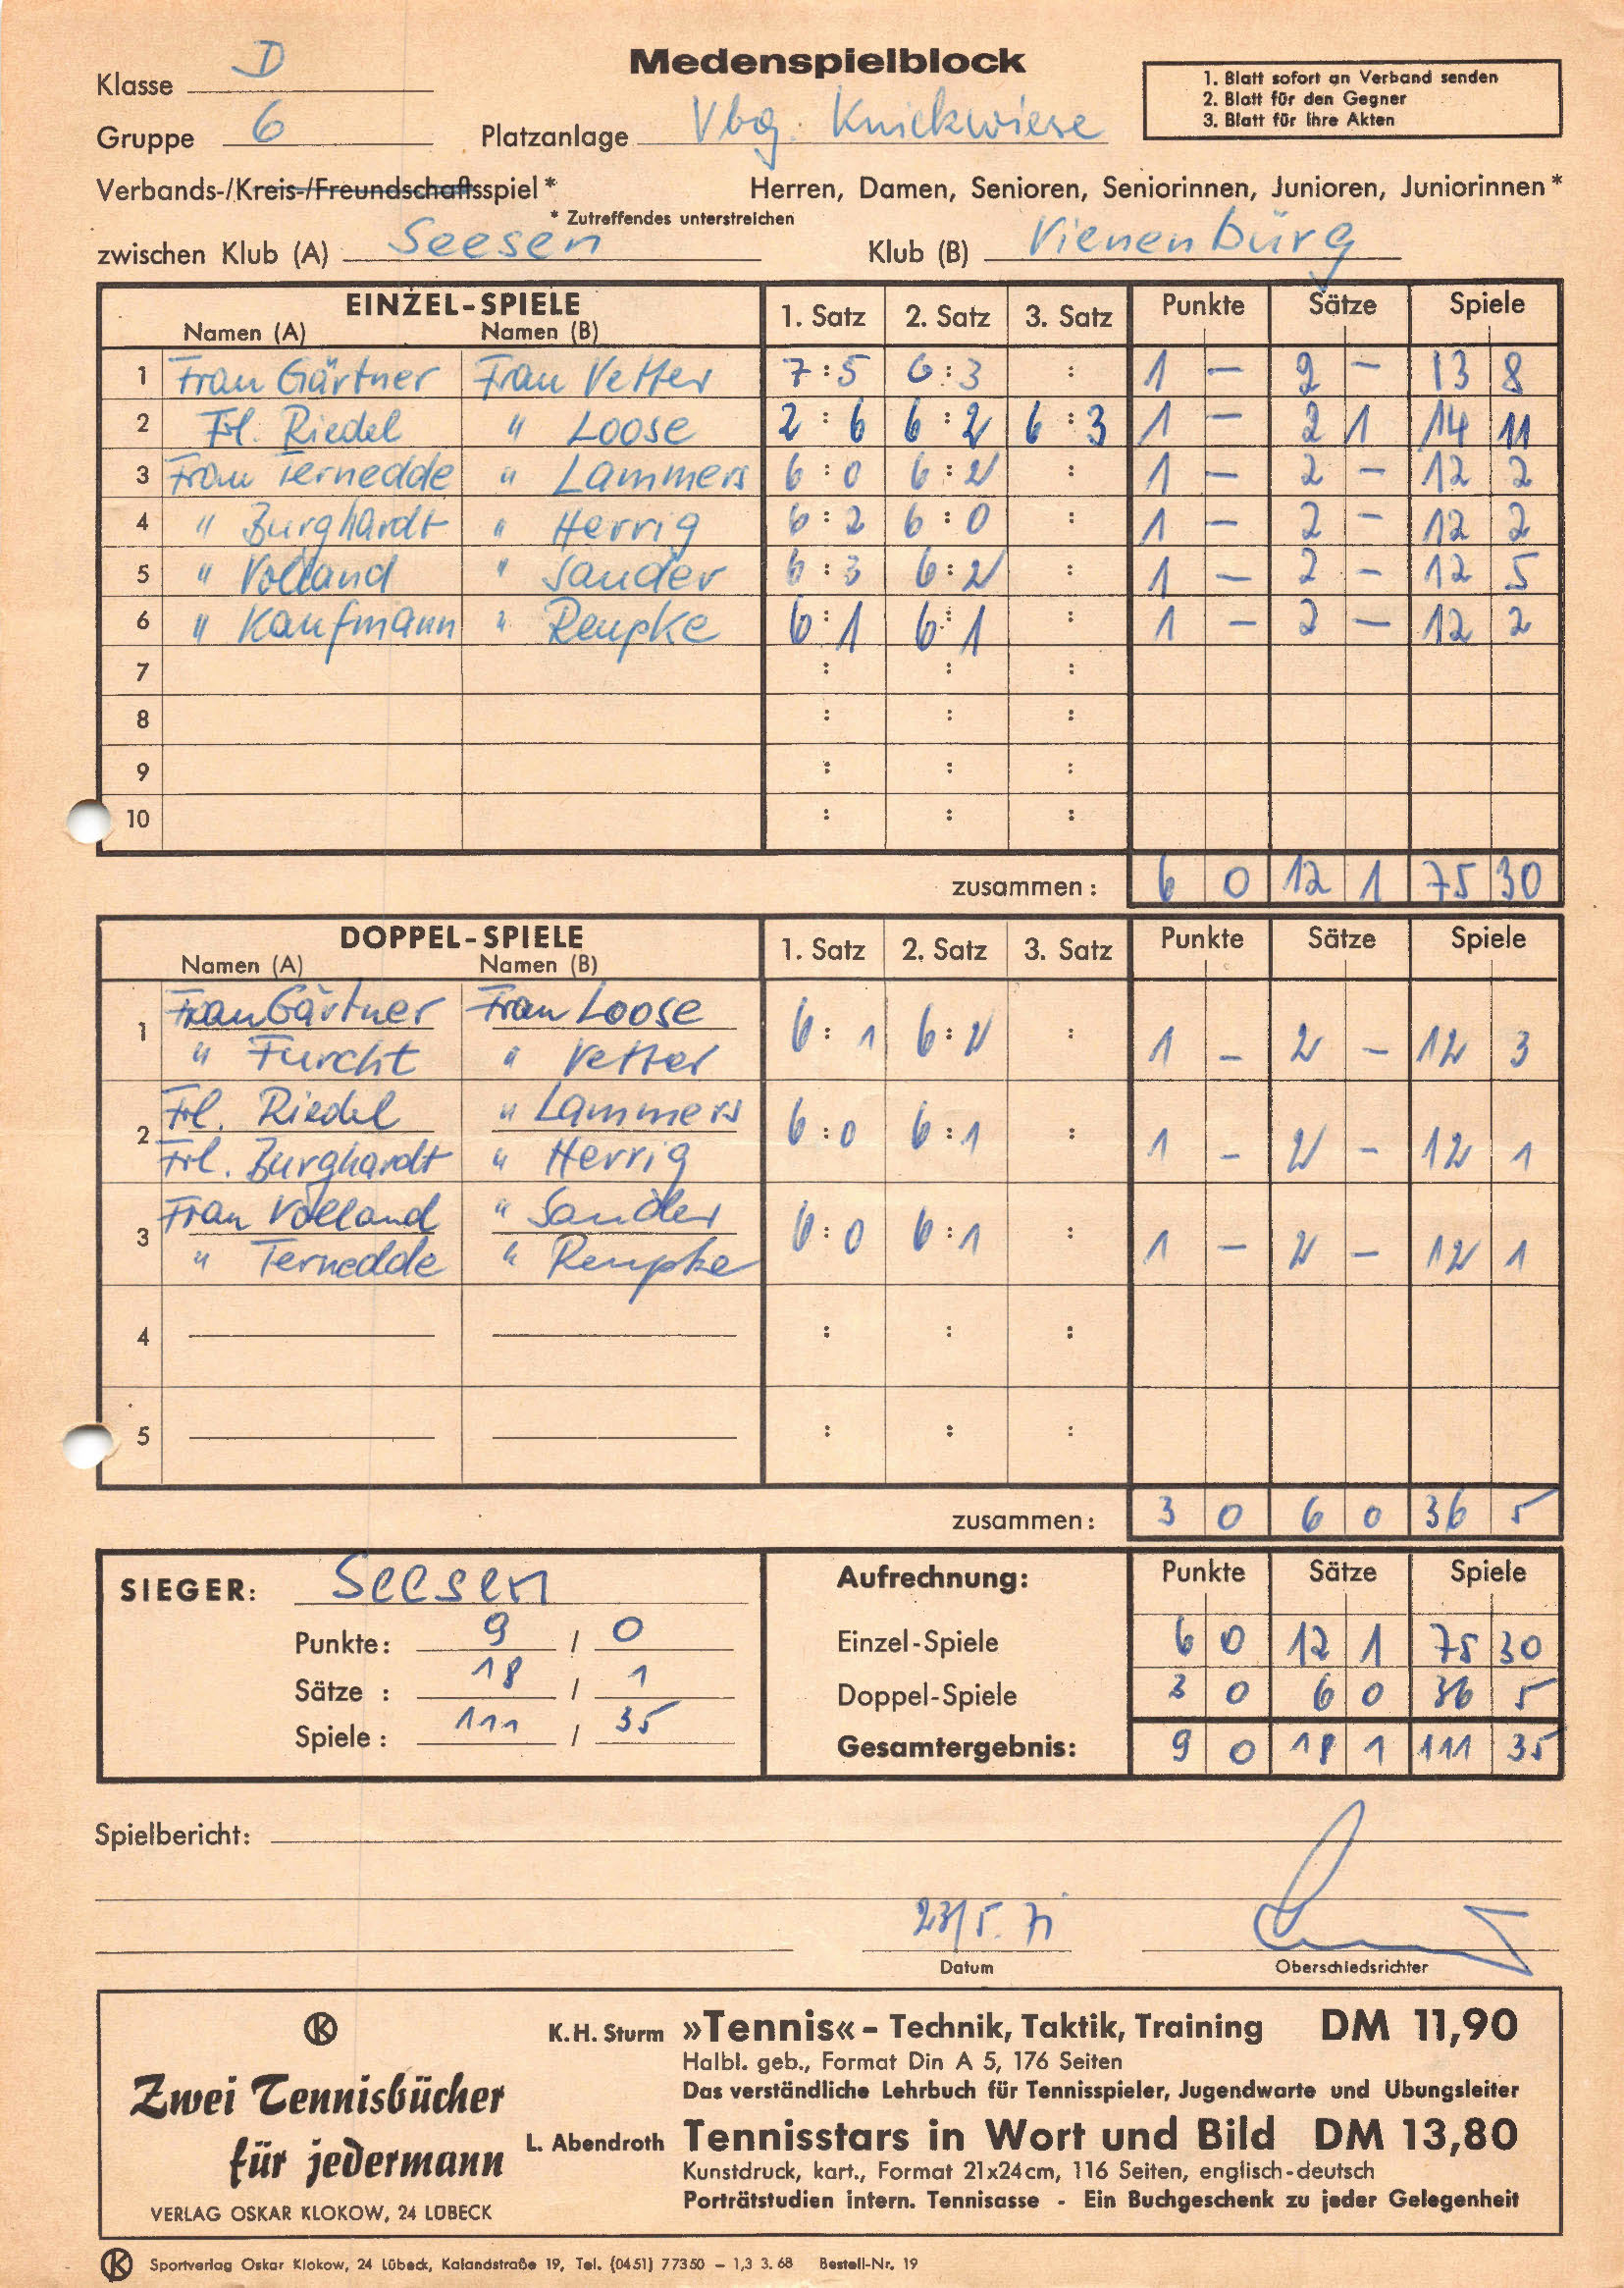 Medenspielblock
Klasse D
Gruppe 6 Platzanlage Vbg. Knickwiese
1. Blatt sofort an Verband senden
2. Blatt für den Gegner
3. Blatt für Ihre Akten
Verbands-/Kreis-/Freundschaftsspiel * Herren, Damen, Senioren, Seniorinnen, Junioren, Juniorinnen *
* Zutreffendes unterstreichen
zwischen Klub (A) Seesen Klub (B) Vienenburg
EINZEL-SPIELE 1. Satz 2. Satz 3. Satz Punkte Sätze Spiele
Namen (A) Namen (B)
1 Frau Gärtner Frau Vetter 7:5 6:3 : 1 – 2 – 13 8
2 Frl. Riedel " Loose 2:6 6:2 6:3 1 – 2 1 14 11
3 Frau Ternedde " Lammers 6:0 6:2 : 1 – 2 – 12 2
4 " Burghardt " Herrig 6:2 6:0 : 1 – 2 – 12 2
5 " Volland " Sander 6:3 6:2 : 1 – 2 – 12 5
6 " Kaufmann " Reupke 6:1 6:1 : 1 – 2 – 12 2
7 : : :
8 : : :
9 : : :
10 : : :
zusammen: 6 0 12 1 75 30
DOPPEL-SPIELE 1. Satz 2. Satz 3. Satz Punkte Sätze Spiele
Namen (A) Namen (B)
Frau Gärtner Frau Loose
1 6:1 6:2 : 1 – 2 – 12 3
" Furcht " Vetter
Frl. Riedel " Lammers
2 6:0 6:1 : 1 – 2 – 12 1
Frl. Burghardt " Herrig
Frau Volland " Sander
3 6:0 6:1 : 1 – 2 – 12 1
" Ternedde " Reupke
4 : : :
5 : : :
zusammen: 3 0 6 0 36 5
SIEGER: Seesen Aufrechnung: Punkte Sätze Spiele
Punkte: 9 / 0 Einzel-Spiele 6 0 12 1 75 30
Sätze : 18 / 1 Doppel-Spiele 3 0 6 0 36 5
Spiele : 111 / 35 Gesamtergebnis: 9 0 18 1 111 35
Spielbericht:
23/5. 71
Datum Oberschiedsrichter
K
Zwei Tennisbücher
für jedermann
VERLAG OSKAR KLOKOW, 24 LÜBECK
K. H. Sturm »Tennis« – Technik, Taktik, Training DM 11,90
Halbl. geb., Format Din A 5, 176 Seiten
Das verständliche Lehrbuch für Tennisspieler, Jugendwarte und Übungsleiter
L. Abendroth Tennisstars in Wort und Bild DM 13,80
Kunstdruck, kart., Format 21x24cm, 116 Seiten, englisch-deutsch
Porträtstudien intern. Tennisasse - Ein Buchgeschenk zu jeder Gelegenheit
K Sportverlag Oskar Klokow, 24 Lübeck, Kalandstraße 19, Tel. (0451) 77350 – 1,3 3. 68 Bestell-Nr. 19